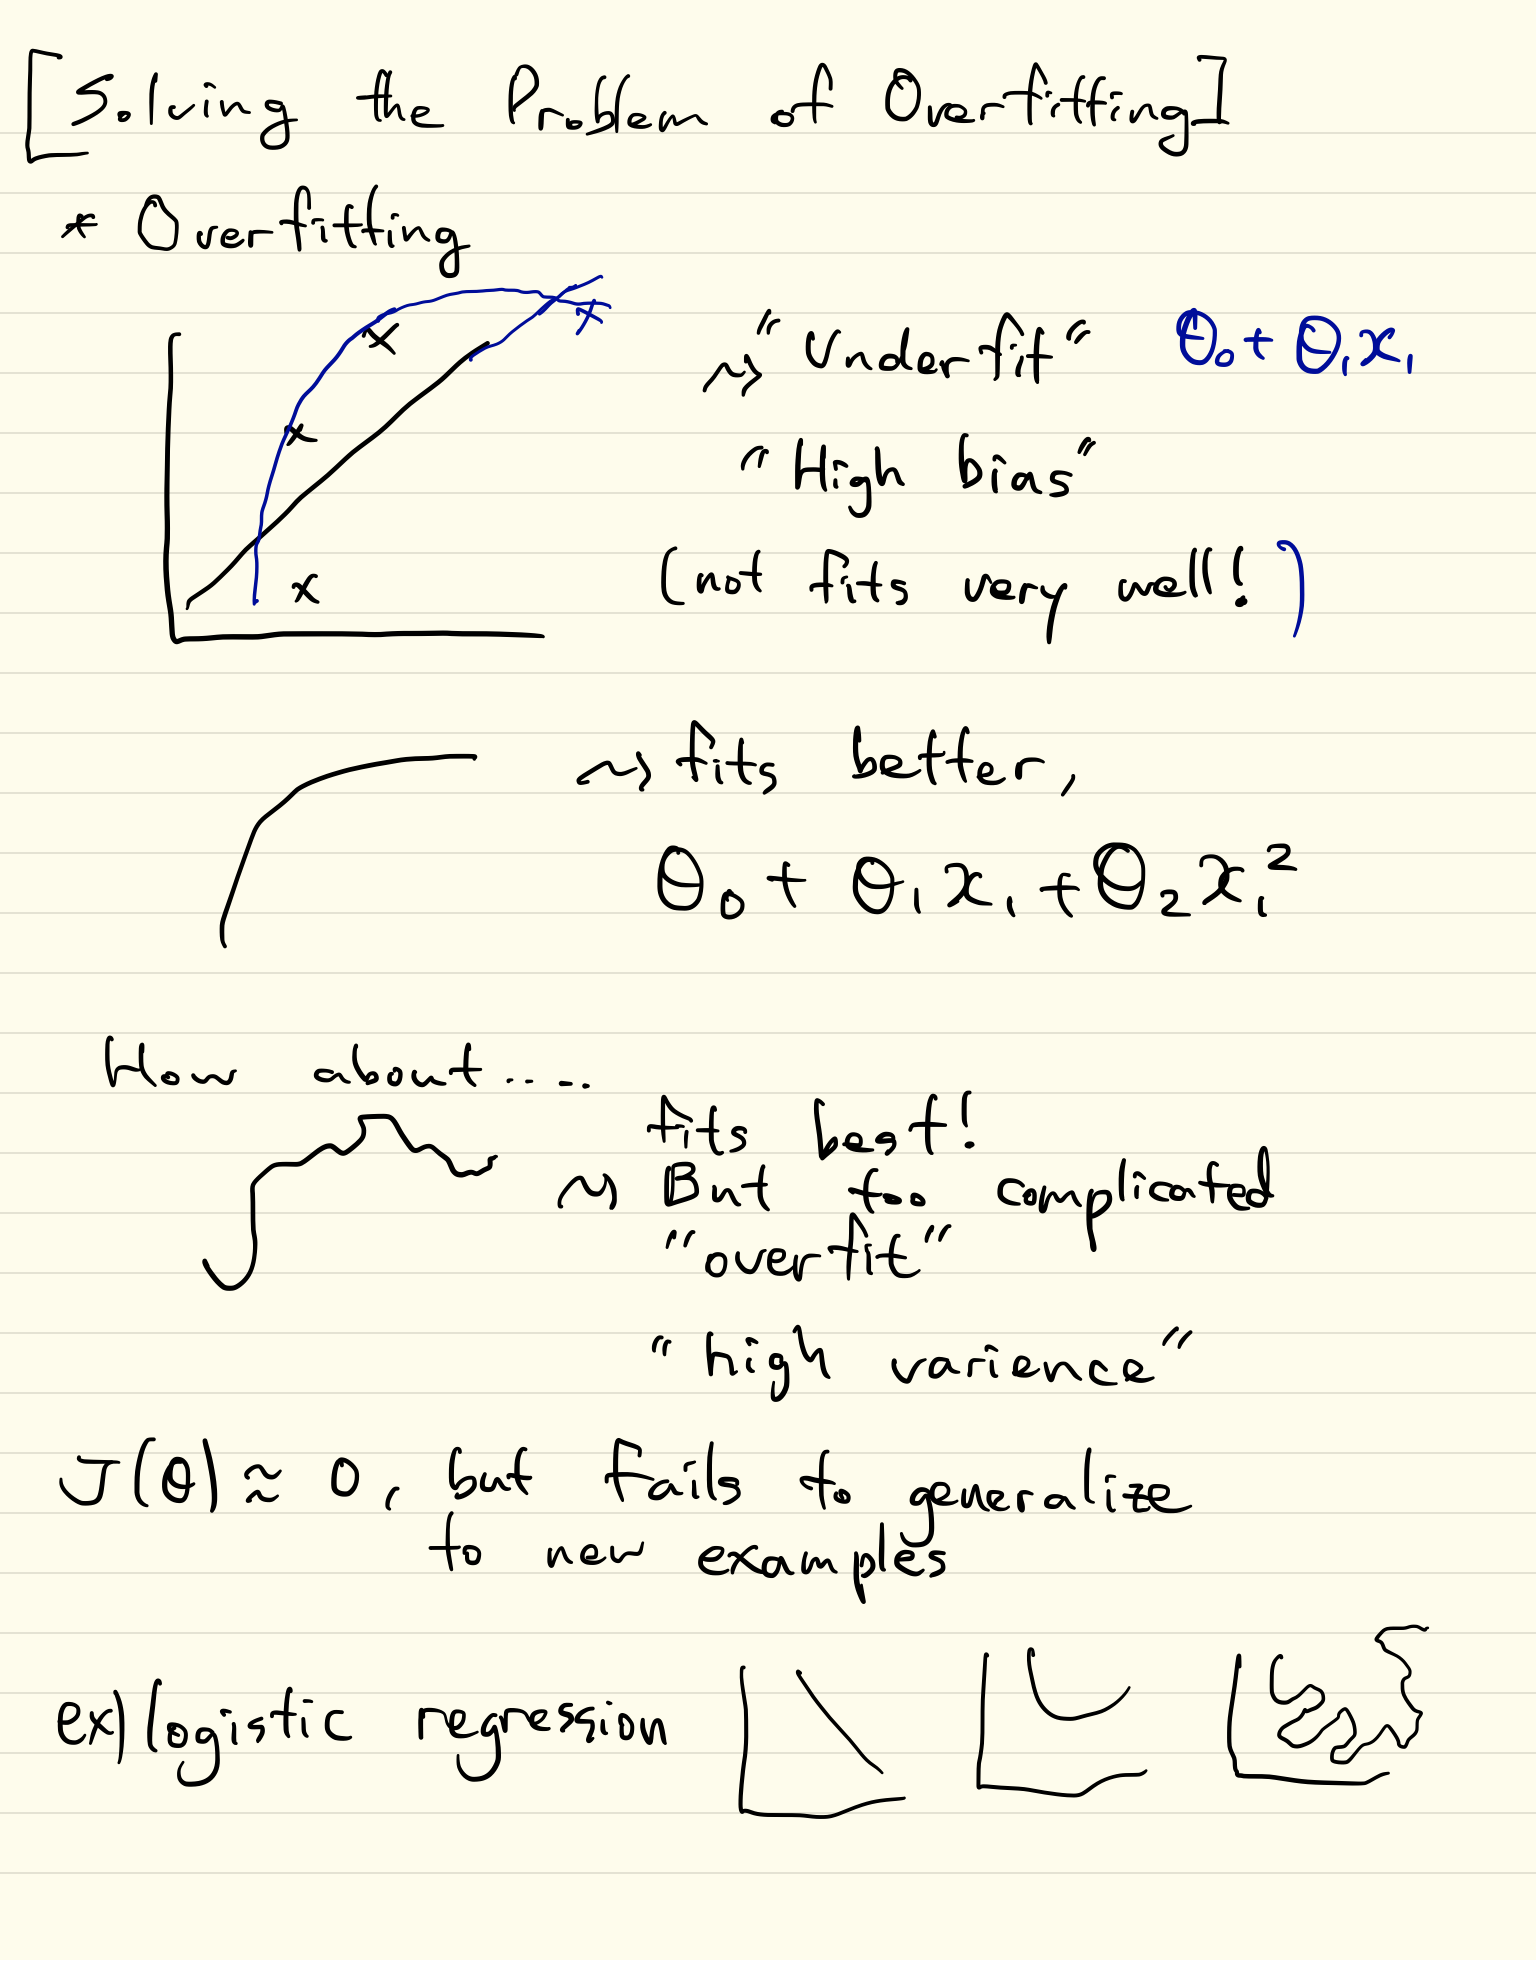 [Solving the Problem of Overfitting]
* Overfitting
x
x
x
x
⇝ "Underfit" θ₀ + θ₁x₁
"High bias"
(not fits very well!)
⇝ fits better,
θ₀ + θ₁x₁ + θ₂x₁²
How about.....
fits best!
⇝ But too complicated
"overfit"
"high varience"
J(θ) ≈ 0, but fails to generalize
to new examples
ex) logistic regression